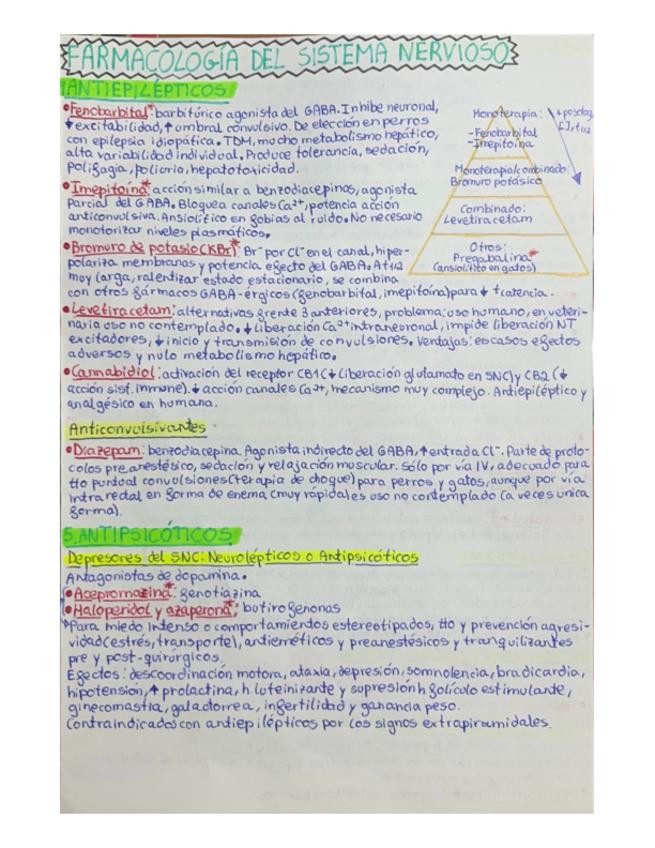 FARMACOLOGÍA DEL SISTEMA NERVIOSO
ANTIEPILÉPTICOS
•Fenobarbital*: barbitúrico agonista del GABA. Inhibe neuronal,
↓excitabilidad, ↑ umbral convulsivo. De elección en perros
con epilepsia idiopática. TDM, mucho metabolismo hepático,
alta variabilidad individual. Produce tolerancia, sedación,
polifagia, poliuria, hepatotoxicidad.
•Imepitoína*: acción similar a benzodiacepinas, agonista
Parcial del GABA. Bloquea canales Ca2+, potencia acción
anticonvulsiva. Ansiolítico en fobias al ruido. No necesario
monotorizar niveles plasmáticos.
•Bromuro de potasio (KBr)*: Br⁻ por Cl⁻ en el canal, hiper-
polariza membranas y potencia efecto del GABA. ↑t1/2
muy larga, ralentizar estado estacionario, se combina
con otros fármacos GABA-érgicos (fenobarbital, imepitoína) para ↓ latencia.
Monoterapia:
-Fenobarbital
-Imepitoína
Monoterapia/combinado:
Bromuro potásico
Combinado:
Levetiracetam
Otros:
Pregabalina*
(ansiolítico en gatos)
•Levetiracetam: alternativas frente 3 anteriores, problema: uso humano, en veteri-
naria uso no contemplado. ↓ liberación Ca2+ intraneuronal, impide liberación NT
excitadores, ↓ inicio y transmisión de convulsiones. Ventajas: escasos efectos
adversos y nulo metabolismo hepático.
•Cannabidiol: activación del receptor CB1 (↓ liberación glutamato en SNC) y CB2 (↓
acción sist. inmune). ↓ acción canales Ca2+, mecanismo muy complejo. Antiepiléptico y
analgésico en humana.
Anticonvulsivantes
•Diazepam: benzodiacepina. Agonista indirecto del GABA, ↑ entrada Cl⁻. Parte de proto-
colos preanestésico, sedación y relajación muscular. Sólo por vía IV, adecuado para
tto puntual convulsiones (terapia de choque) para perros y gatos, aunque por vía
intrarectal en forma de enema (muy rápida) es uso no contemplado (a veces unica
forma).
5. ANTIPSICÓTICOS
Depresores del SNC: Neurolépticos o Antipsicóticos
Antagonistas de dopamina.
•Acepromazina*: fenotiazina
•Haloperidol y azaperona*: butirofenonas
Para miedo intenso o comportamientos estereotipados, tto y prevención agresi-
vidad (estrés, transporte), antieméticos y preanestésicos y tranquilizantes
pre y post-quirúrgicos.
Efectos: descoordinación motora, ataxia, depresión, somnolencia, bradicardia,
hipotensión, ↑ prolactina, h. luteinizante y supresión h folículo estimulante,
ginecomastia, galactorrea, infertilidad y ganancia peso.
Contraindicados con antiepilépticos por los signos extrapiramidales.